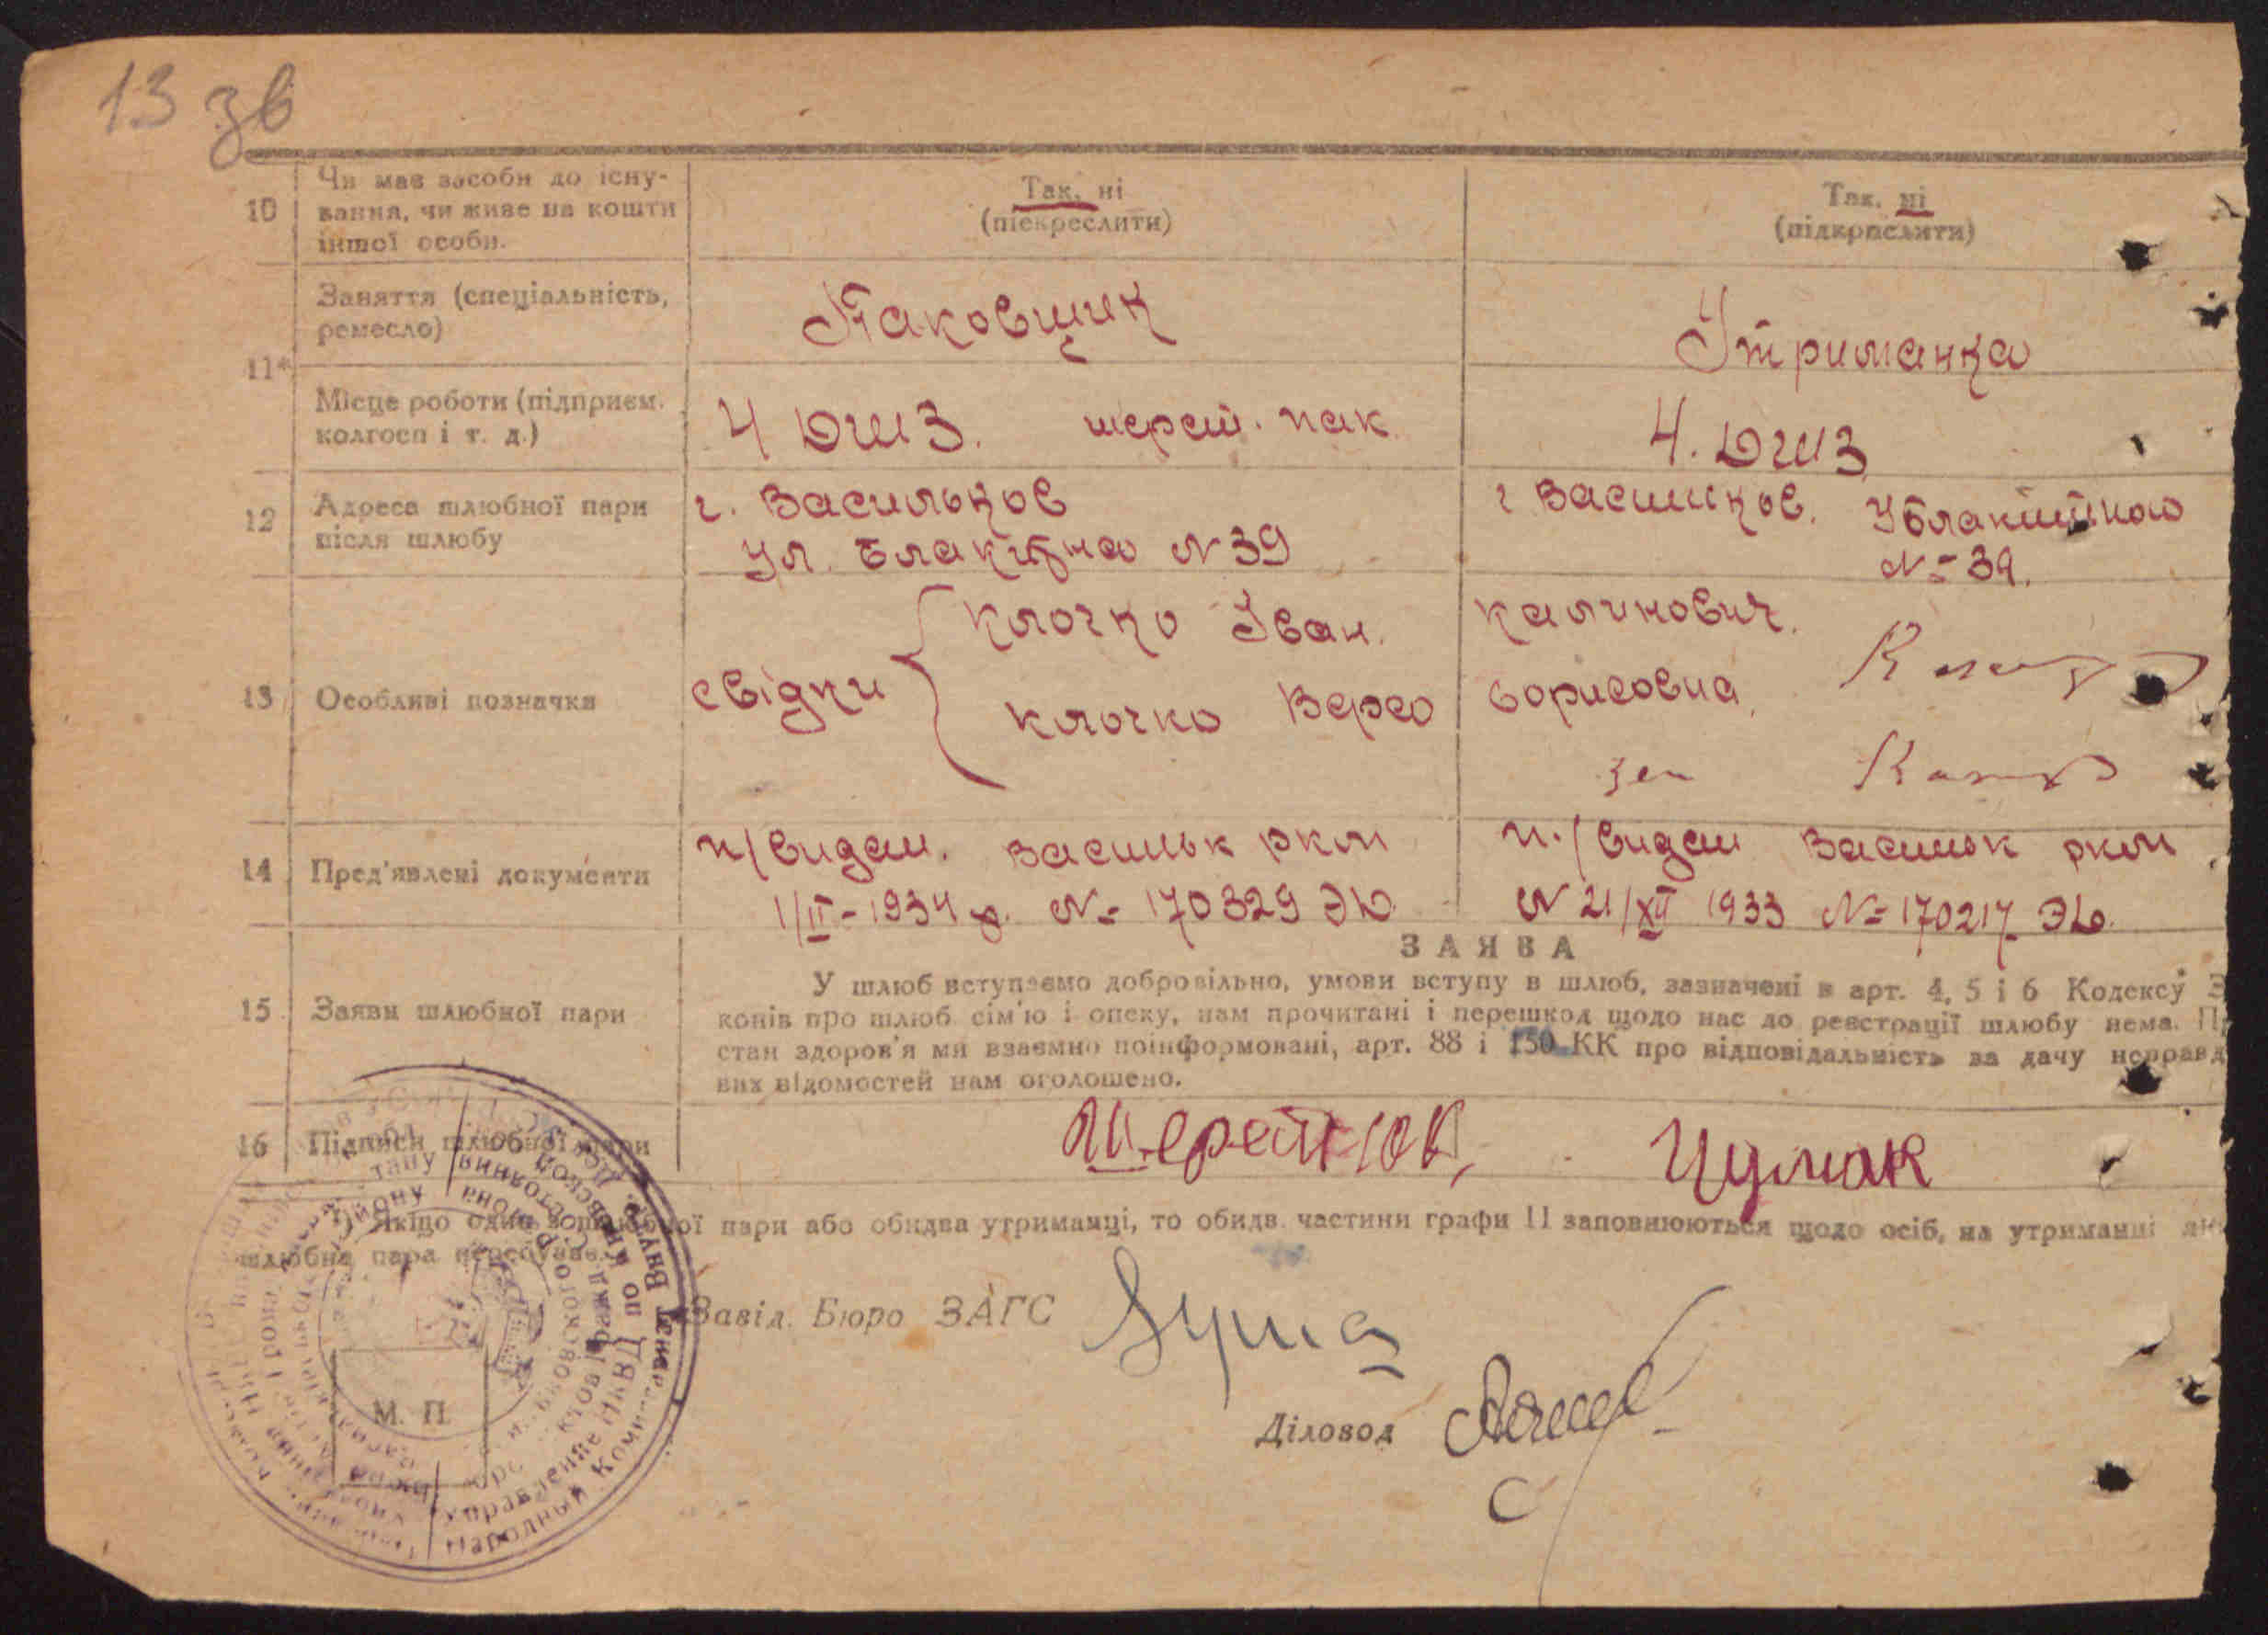 13 зв
10 Чи має засоби до існу-
вання, чи живе на кошти
іншої особи.
Так, ні
(підкреслити)
Так, ні
(підкреслити)
11*
Заняття (спеціальність,
ремесло)
Паковщик
Утриманка
Місце роботи (підприєм.
колгосп і т. д.)
4 ДШЗ. шерет. пак.
4. ДШЗ
12 Адреса шлюбної пари
після шлюбу
г. Васильков
Ул. Блакитна № 39
г Васильков.
№ 39.
13 Особливі позначки
свідки
Клочко Іван. Калинович.
Клочко Вера Борисовна.
14 Пред'явлені документи
п/видан. Васильк ркм
1/II-1934 р. № 170329 ЭЮ
п./видан Васильк ркм
№ 21/XII 1933 № 170217 ЭЮ.
15 Заяви шлюбної пари
ЗАЯВА
У шлюб вступаємо добровільно, умови вступу в шлюб, зазначені в арт. 4, 5 і 6 Кодексу З
конів про шлюб сім'ю і опеку, нам прочитані і перешкод щодо нас до реєстрації шлюбу нема. Пр
стан здоров'я ми взаємно поінформовані, арт. 88 і 150 КК про відповідальність за дачу неправд
вих відомостей нам оголошено.
16 Підписи шлюбної пари
Чумак
1) Якщо один з шлюбної пари або обидва утриманці, то обидв. частини графи 11 заповнюються щодо осіб, на утриманні як
шлюбна пара перебуває.
Завід. Бюро ЗАГС
М. П.
Діловод
Управление НКВД по
Народный Комис